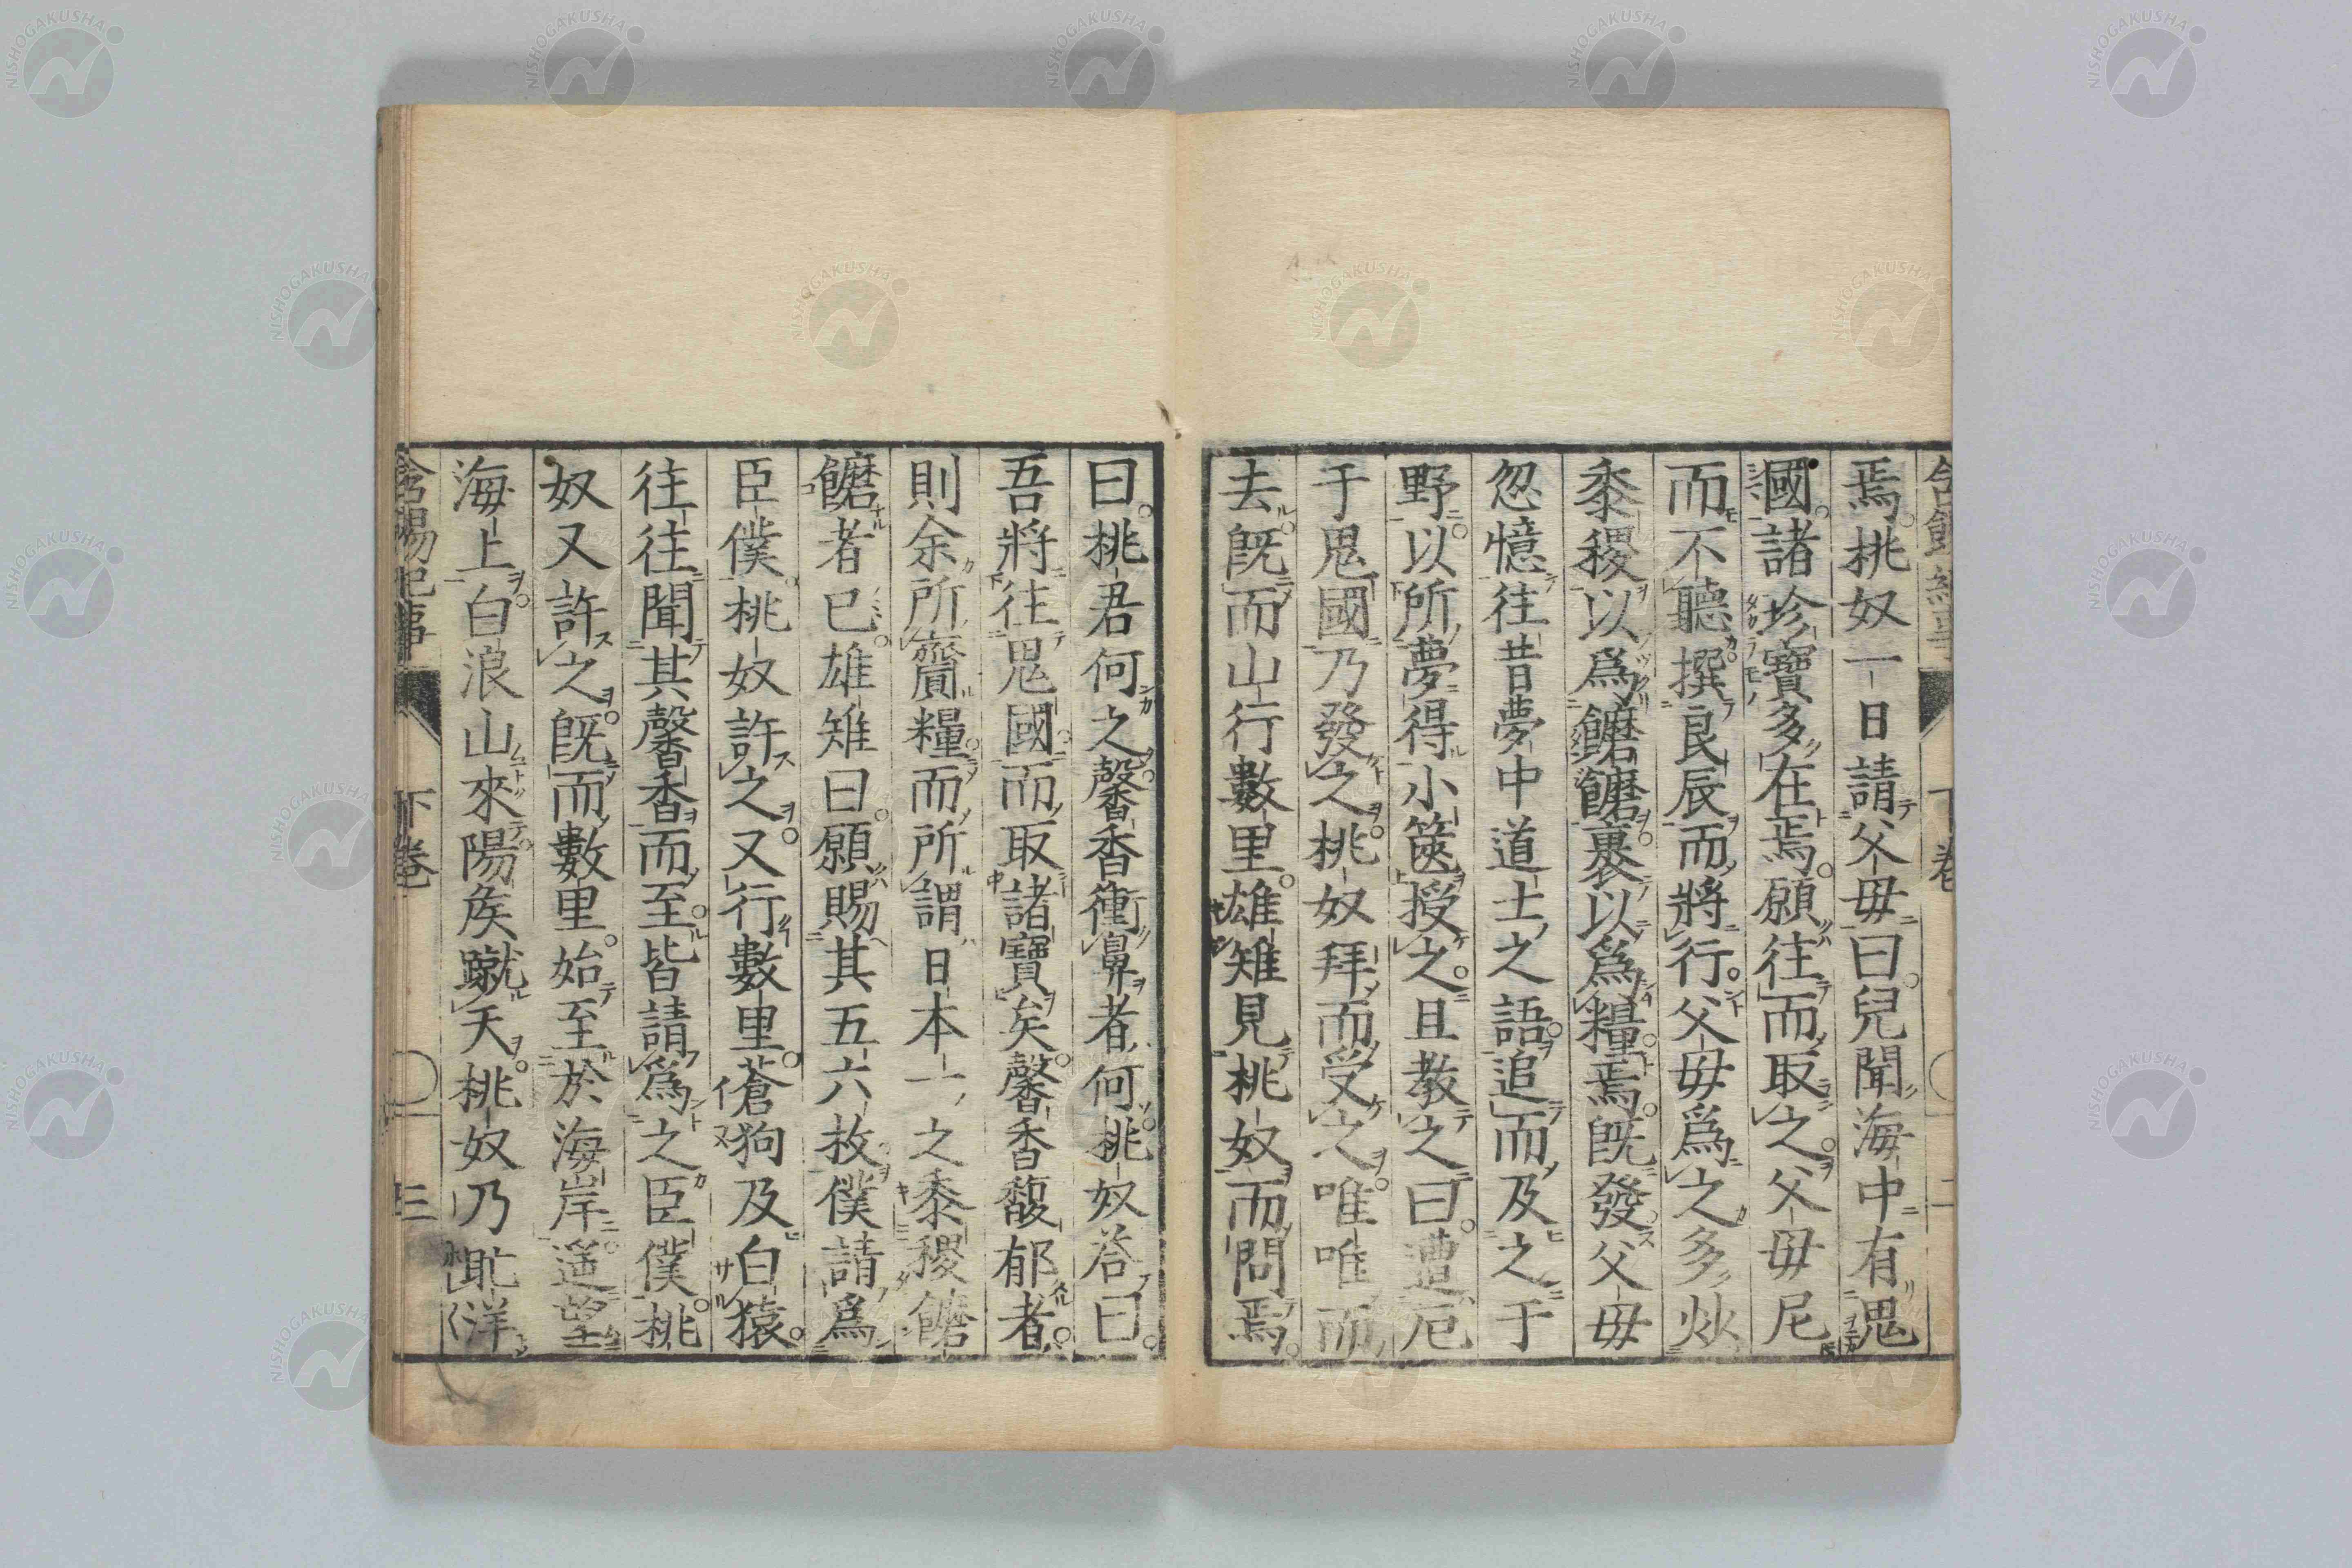 焉桃奴一日請父母曰兒聞海中有鬼
國諸珍寶多在焉願往而取之父母尼
而不聽撰良辰而將行父母爲之多炊
黍稷以爲䭧䭧裹以爲糧焉既發父母
忽憶往昔夢中道士之語追而及之于
野以所夢得小篋授之且教之曰遭厄
于鬼國乃發之桃奴拜而受之唯唯而
去既而山行數里雄雉見桃奴而問焉
曰桃君何之馨香衝鼻者何桃奴答曰
吾將往鬼國而取諸寶矣馨香馥郁者
則余所齎糧而所謂日本一之黍稷䭧
䭧者已雄雉曰願賜其五六枚僕請爲
臣僕桃奴許之又行數里蒼狗及白猿
往往聞其馨香而至皆請爲之臣僕桃
奴又許之既而數里始至於海岸遥望
海上白浪山來陽侯蹴天桃奴乃䀮洋
含餳紀事 下卷 三